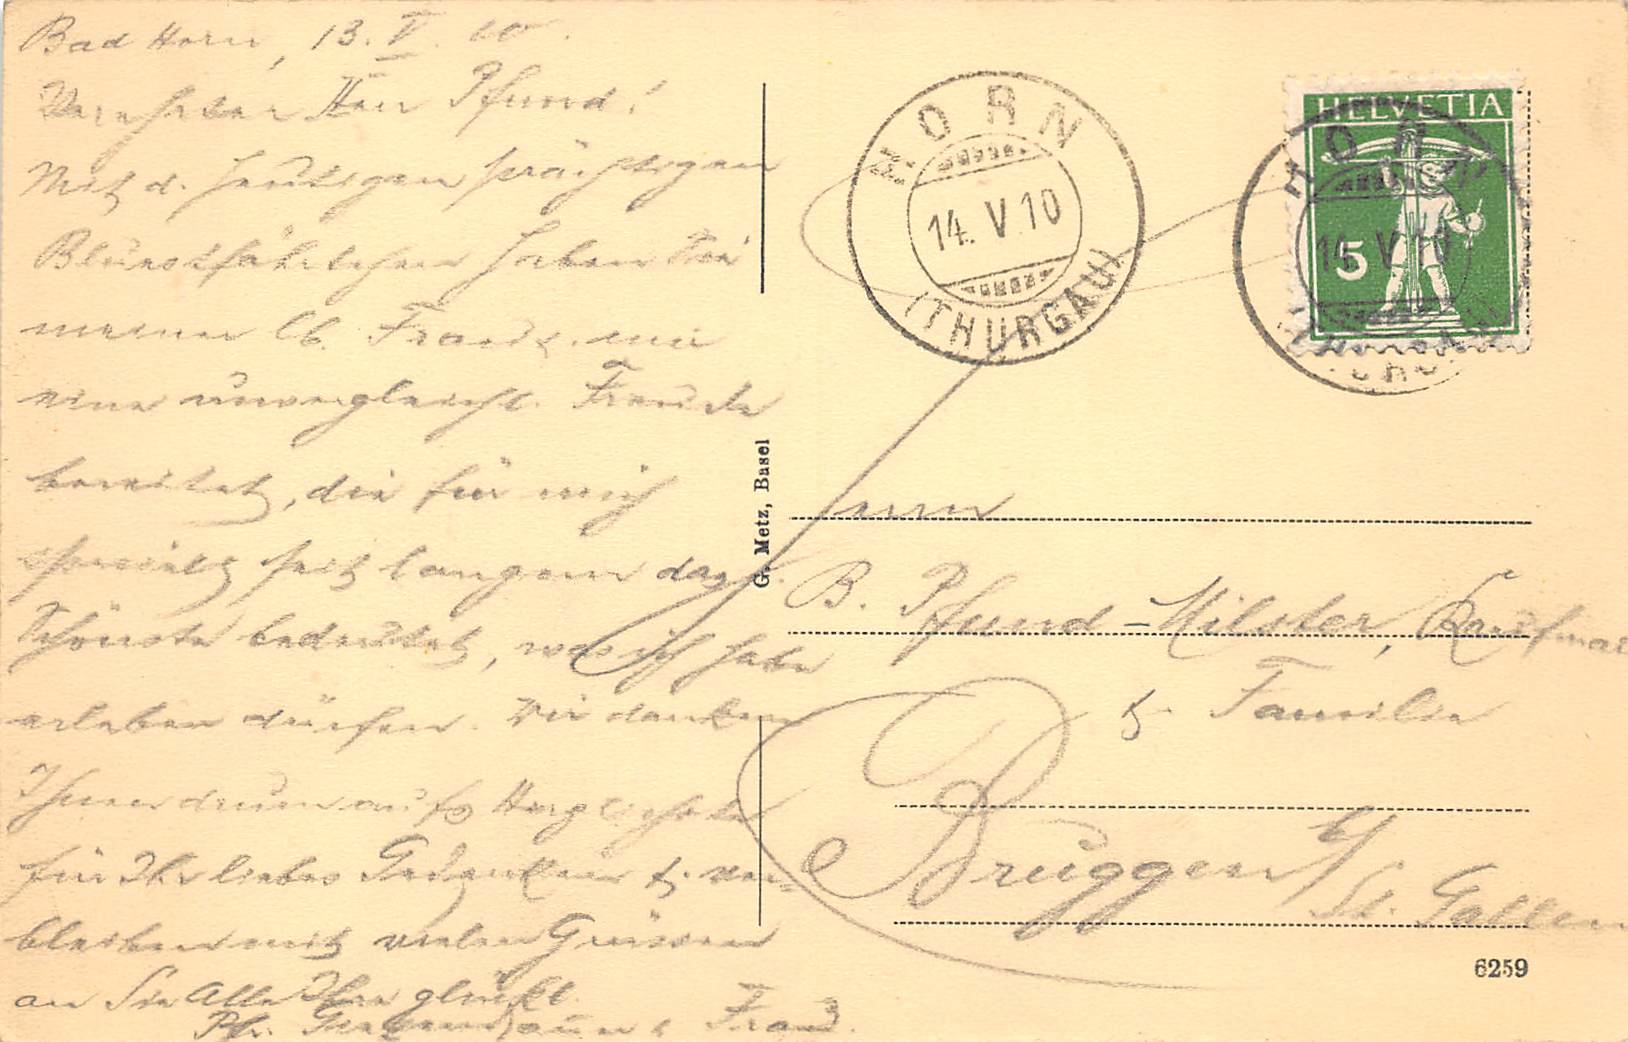 Bad Horn, 13. V. 10.
Verehrter Herr Pfund!
Mit d. heutigen prächtigen
haben Sie
meiner lb. Frau & mir
eine unvergleichl. Freude
bereitet, die für mich
speciell seit langem das
Schönste bedeutet, was ich habe
erleben dürfen. Wir danken
Ihnen drum aufs Herzlichste
für Ihr liebes Gedenken & ver-
bleiben mit vielen Grüssen
an Sie Alle Ihre glückl.
Pfr. & Frau.
HORN
14. V. 10
(THURGAU)
HELVETIA
5
HORN
14. V. 10
G. Metz, Basel
Herrn
B. Pfund-Hilster, Kaufman
& Familie
Bruggen b/
St. Gallen
6259